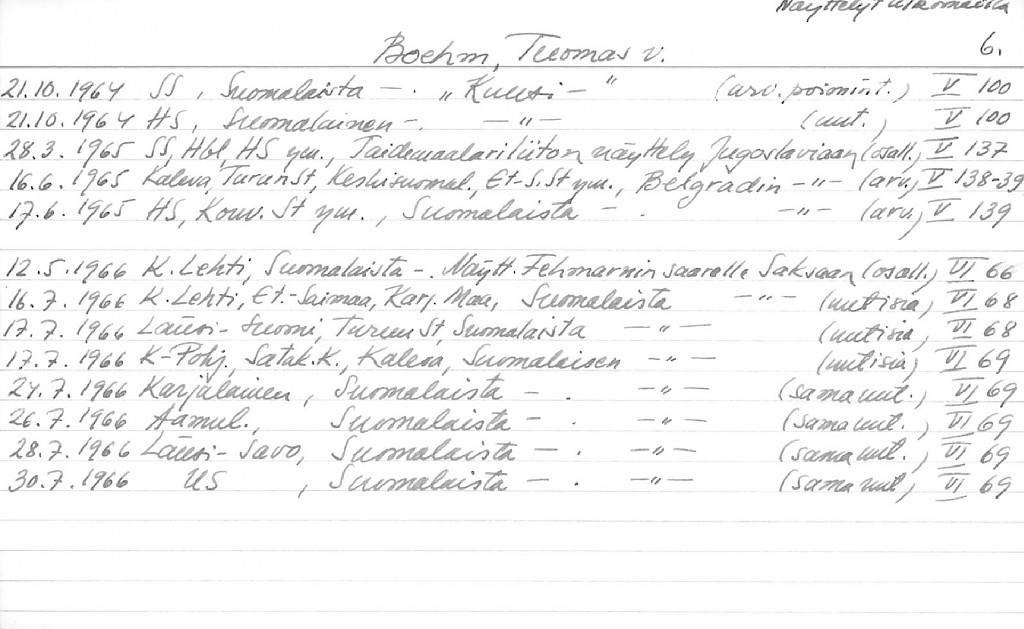 Näyttelyt ulkomailla
Boehm, Tuomas v. 6.
21.10.1964 SS, Suomalaista - . „Kuusi - " (arv. poimint.) V 100
21.10.1964 HS, Suomalainen - . - „ - (uut.) V 100
28.3.1965 SS, Hbl, HS ym., Taidemaalariliiton näyttely Jugoslaviaan (osall.) V 137
16.6.1965 Kaleva, TurunSt, Keskisuomal., Et-S.St ym., Belgradin - „ - (arv.) V 138-39
17.6.1965 HS, Kouv. St ym., Suomalaista - . - „ - (arv.) V 139
12.5.1966 K. Lehti, Suomalaista - . Näytt. Fehmarnin saarelle Saksaan (osall.) VI 66
16.7.1966 K. Lehti, Et.-Saimaa, Karj. Maa, Suomalaista - „ - (uutisia) VI 68
17.7.1966 Länsi-Suomi, Turun St, Suomalaista - „ - (uutisia) VI 68
17.7.1966 K-Pohj, Satak.K., Kaleva, Suomalaisen - „ - (uutisia) VI 69
24.7.1966 Karjalainen, Suomalaista - . - „ - (sama uut.) VI 69
26.7.1966 Aamul., Suomalaista - . - „ - (sama uut.) VI 69
28.7.1966 Länsi-Savo, Suomalaista - . - „ - (sama uut.) VI 69
30.7.1966 US, Suomalaista - . - „ - (sama uut.) VI 69